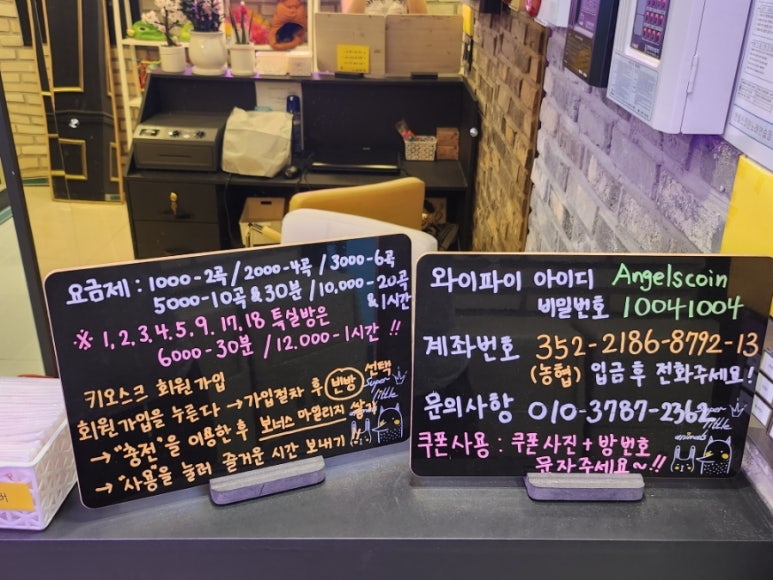 요금제 : 1000-2곡 / 2000-4곡 / 3000-6곡
5000-10곡 & 30분 / 10,000-20곡
& 1시간
※ 1, 2, 3, 4, 5, 9, 17, 18 특실방은
6000-30분 / 12.000-1시간 !!
키오스크 회원가입
회원가입을 누른다 → 가입절차 후 빈방 선택
→ "충전"을 이용한 후 보너스 마일리지 쌓기
→ "사용"을 눌러 즐거운 시간 보내기 !!
super little
와이파이 아이디 Angelscoin
비밀번호 10041004
계좌번호 352-2186-8792-13
(농협) 입금 후 전화주세요!
문의사항 010-3787-2362
쿠폰사용 : 쿠폰사진 + 방번호
문자주세요~!!
super little
animals